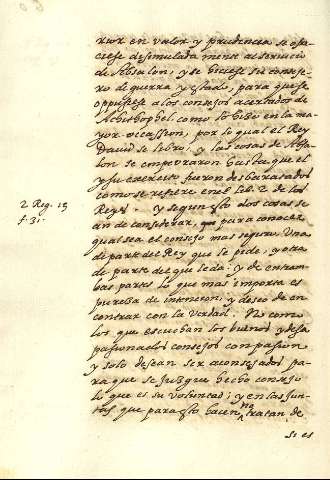 rior en valor y prudencia se ofre
ciese desimulada mente al servicio
de Absalon, y se hiciese su conseje
ro de guerra y estado, para que se
oppusiese a los consejos acertados de
Achithophel como lo hizo en la ma
yor occassion, por lo qual el Rey
David se libro; y las cosas de Absa
lon se empeoraron hasta que el
y su exercito fueron desbaratados
como se refiere en el lib. 2 de los
Reyes. y segun esto dos cosas se
an de considerar, para conocer
qual sea el consejo mas seguro. Una
de parte del Rey que le pide, y otra
de parte del que le da: y de entram
bas partes lo que mas importa es
pureza de intencion, y deseo de en
contrar con la verdad. No como
los que escuchan los buenos y desa
pasionados consejos con pasion
y solo desean ser aconsejados pa
ra que se juzgue hecho consejo
lo que es su voluntad; y en las jun
tas que para esto hacen no tratan de
si es
2 Reg. 15
f. 31.